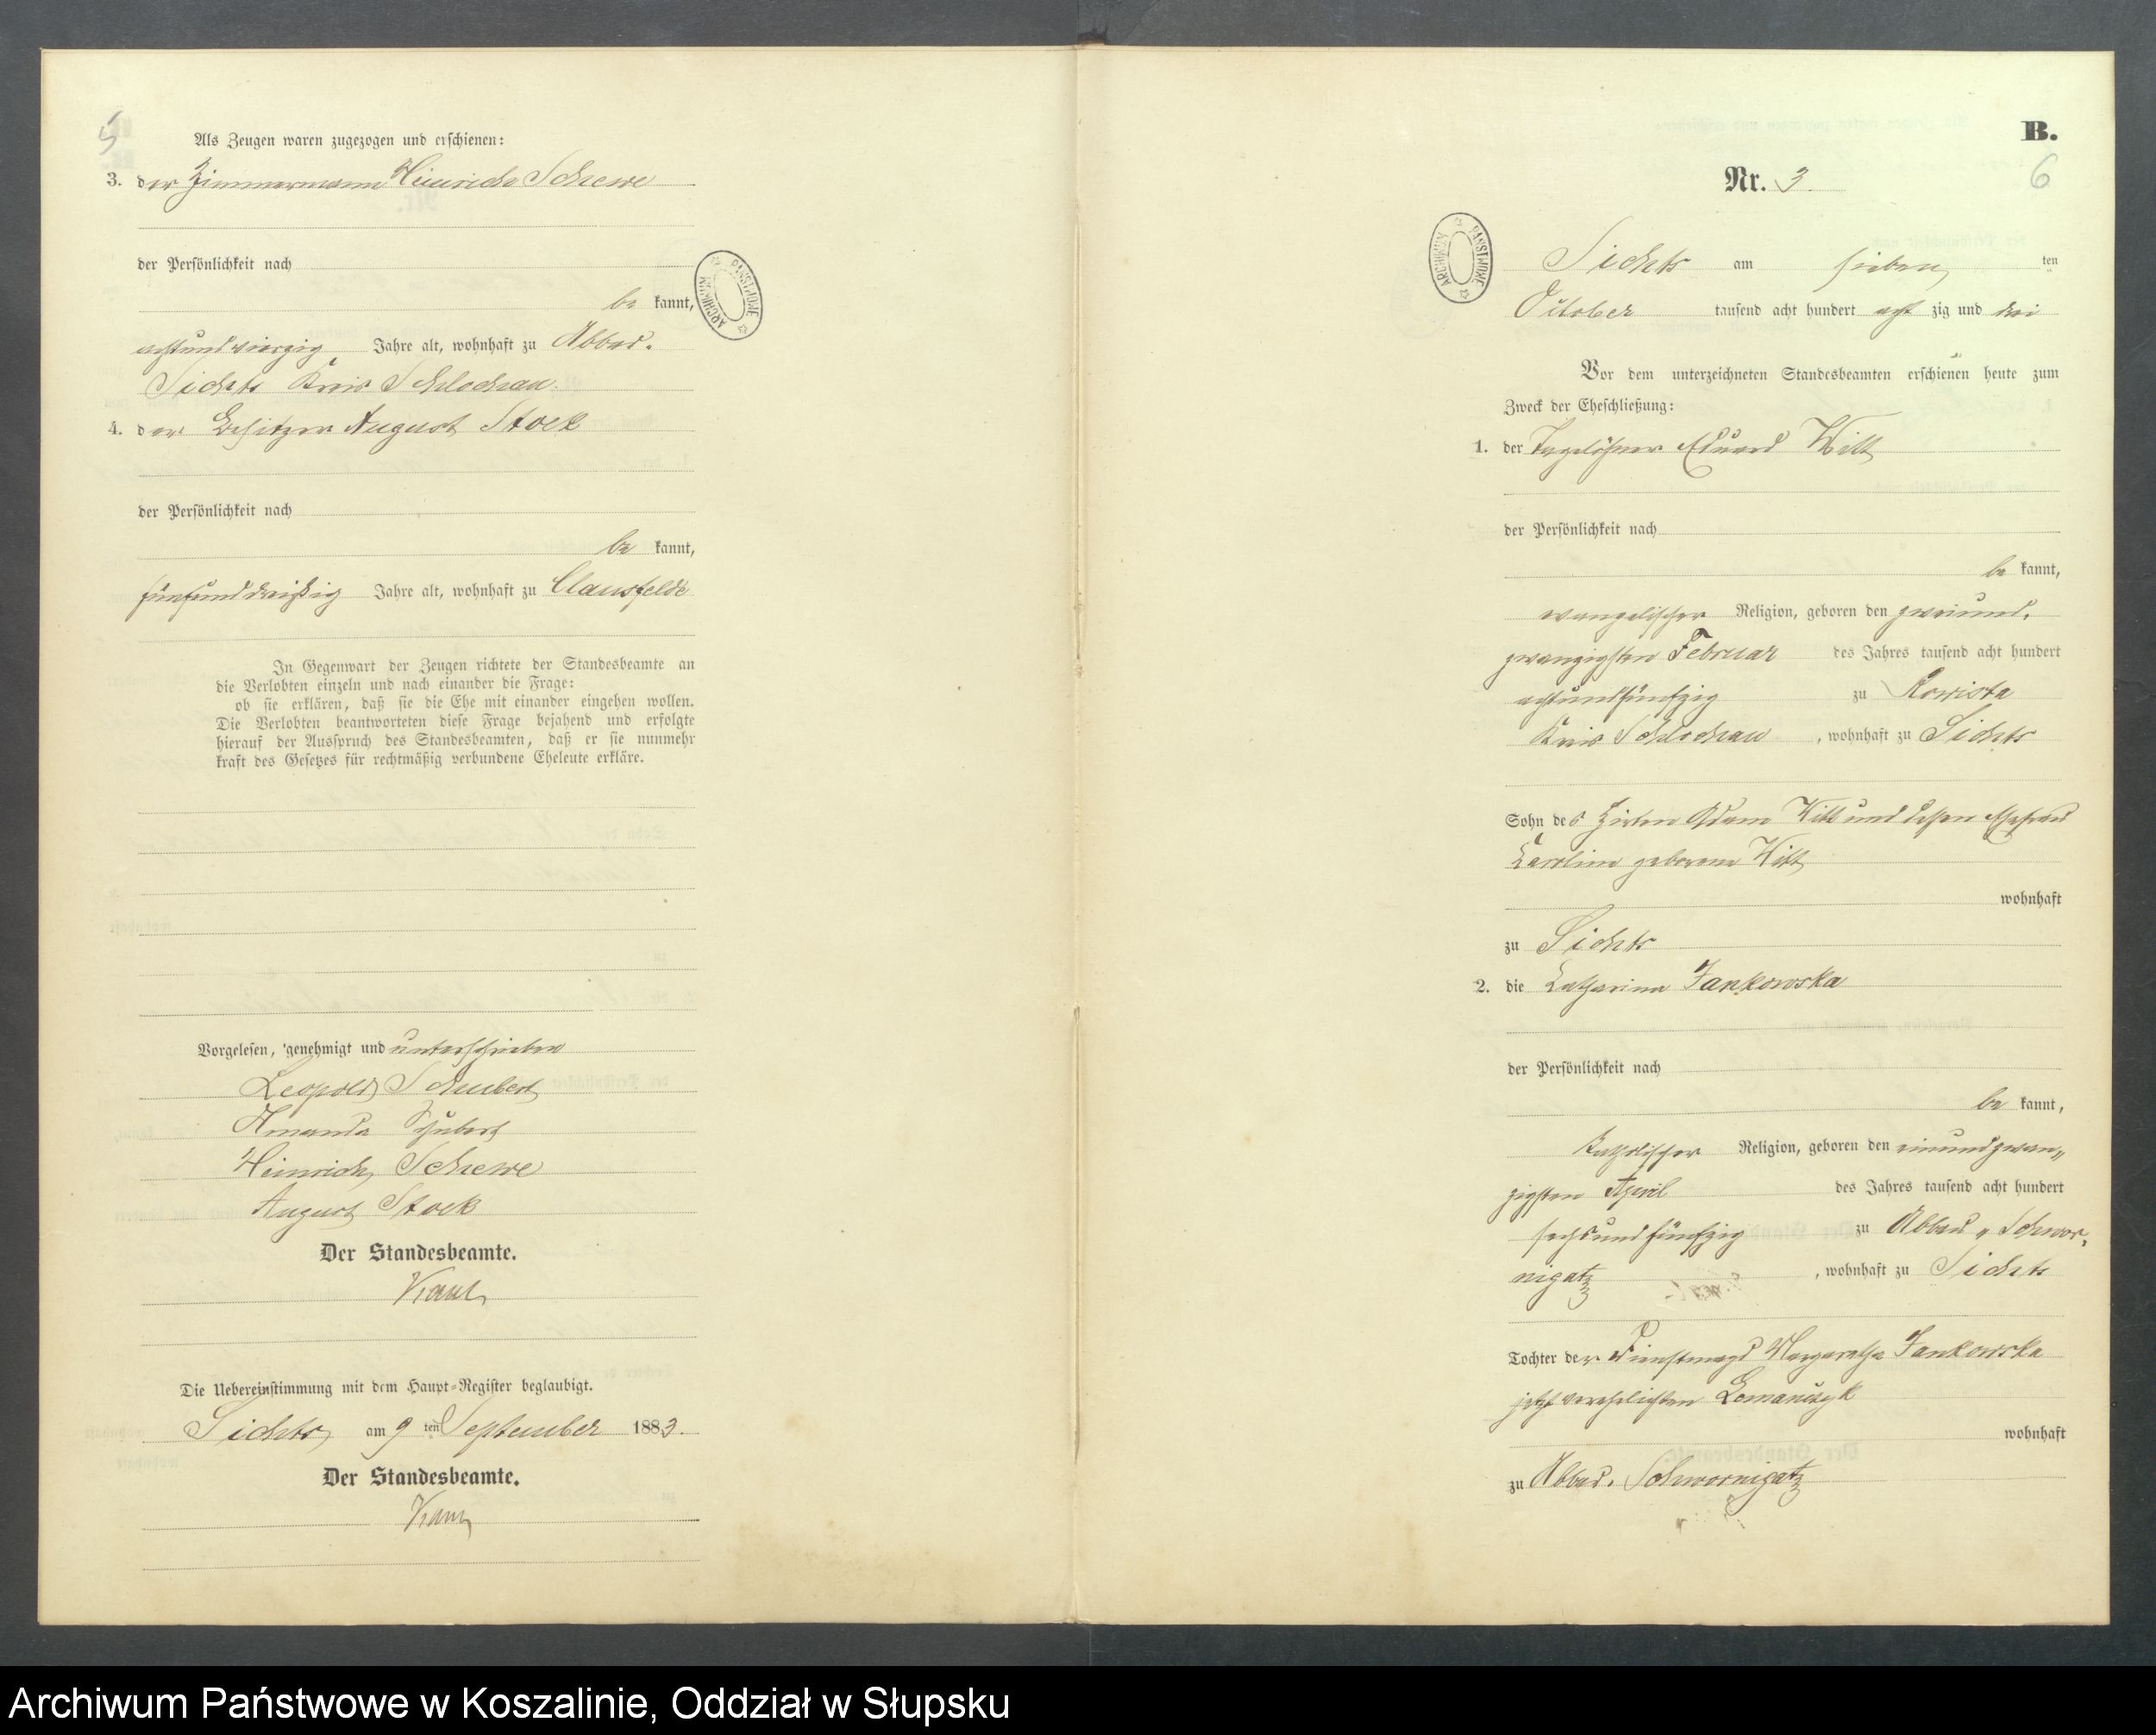 5
Als Zeugen waren zugezogen und erschienen:
3. der Zimmermann Heinrich Schewe
der Persönlichkeit nach
be kannt,
achtundvierzig Jahre alt, wohnhaft zu Abbau-
Sichts Kreis Schlochau
4. der Besitzer August Stock
der Persönlichkeit nach
be kannt,
fünfunddreißig Jahre alt, wohnhaft zu Clausfelde
In Gegenwart der Zeugen richtete der Standesbeamte an
die Verlobten einzeln und nach einander die Frage:
ob sie erklären, daß sie die Ehe mit einander eingehen wollen.
Die Verlobten beantworteten diese Frage bejahend und erfolgte
hierauf der Ausspruch des Standesbeamten, daß er sie nunmehr
kraft des Gesetzes für rechtmäßig verbundene Eheleute erkläre.
Vorgelesen, genehmigt und unterschrieben
Leopold Schubert
Amanda Schubert
Heinrich Schewe
August Stock
Der Standesbeamte.
Die Uebereinstimmung mit dem Haupt-Register beglaubigt.
Sichts am 9 ten September 1883.
Der Standesbeamte.
ARCHIWUM PAŃSTWOWE
B.
6
Nr. 3.
ARCHIWUM PAŃSTWOWE
Sichts am sieben ten
October tausend acht hundert acht zig und drei
Vor dem unterzeichneten Standesbeamten erschienen heute zum
Zweck der Eheschließung:
1. der Tagelöhner Eduard Witt
der Persönlichkeit nach
be kannt,
evangelischer Religion, geboren den zweiund-
zwanzigsten Februar des Jahres tausend acht hundert
achtundfünfzig zu
Kreis Schlochau, wohnhaft zu Sichts
Sohn des Hirten Adam Witt und dessen Ehefrau
Caroline geborene Witt
wohnhaft
zu Sichts
2. die Catharina Jankowska
der Persönlichkeit nach
be kannt,
katholischer Religion, geboren den einundzwan-
zigsten April des Jahres tausend acht hundert
sechsundfünfzig zu Abbau Schwor-
nigatz, wohnhaft zu Sichts
Tochter der Dienstmagd Margaretha Jankowska
jetzt verehelichten
wohnhaft
zu Abbau Schwornigatz
Archiwum Państwowe w Koszalinie, Oddział w Słupsku